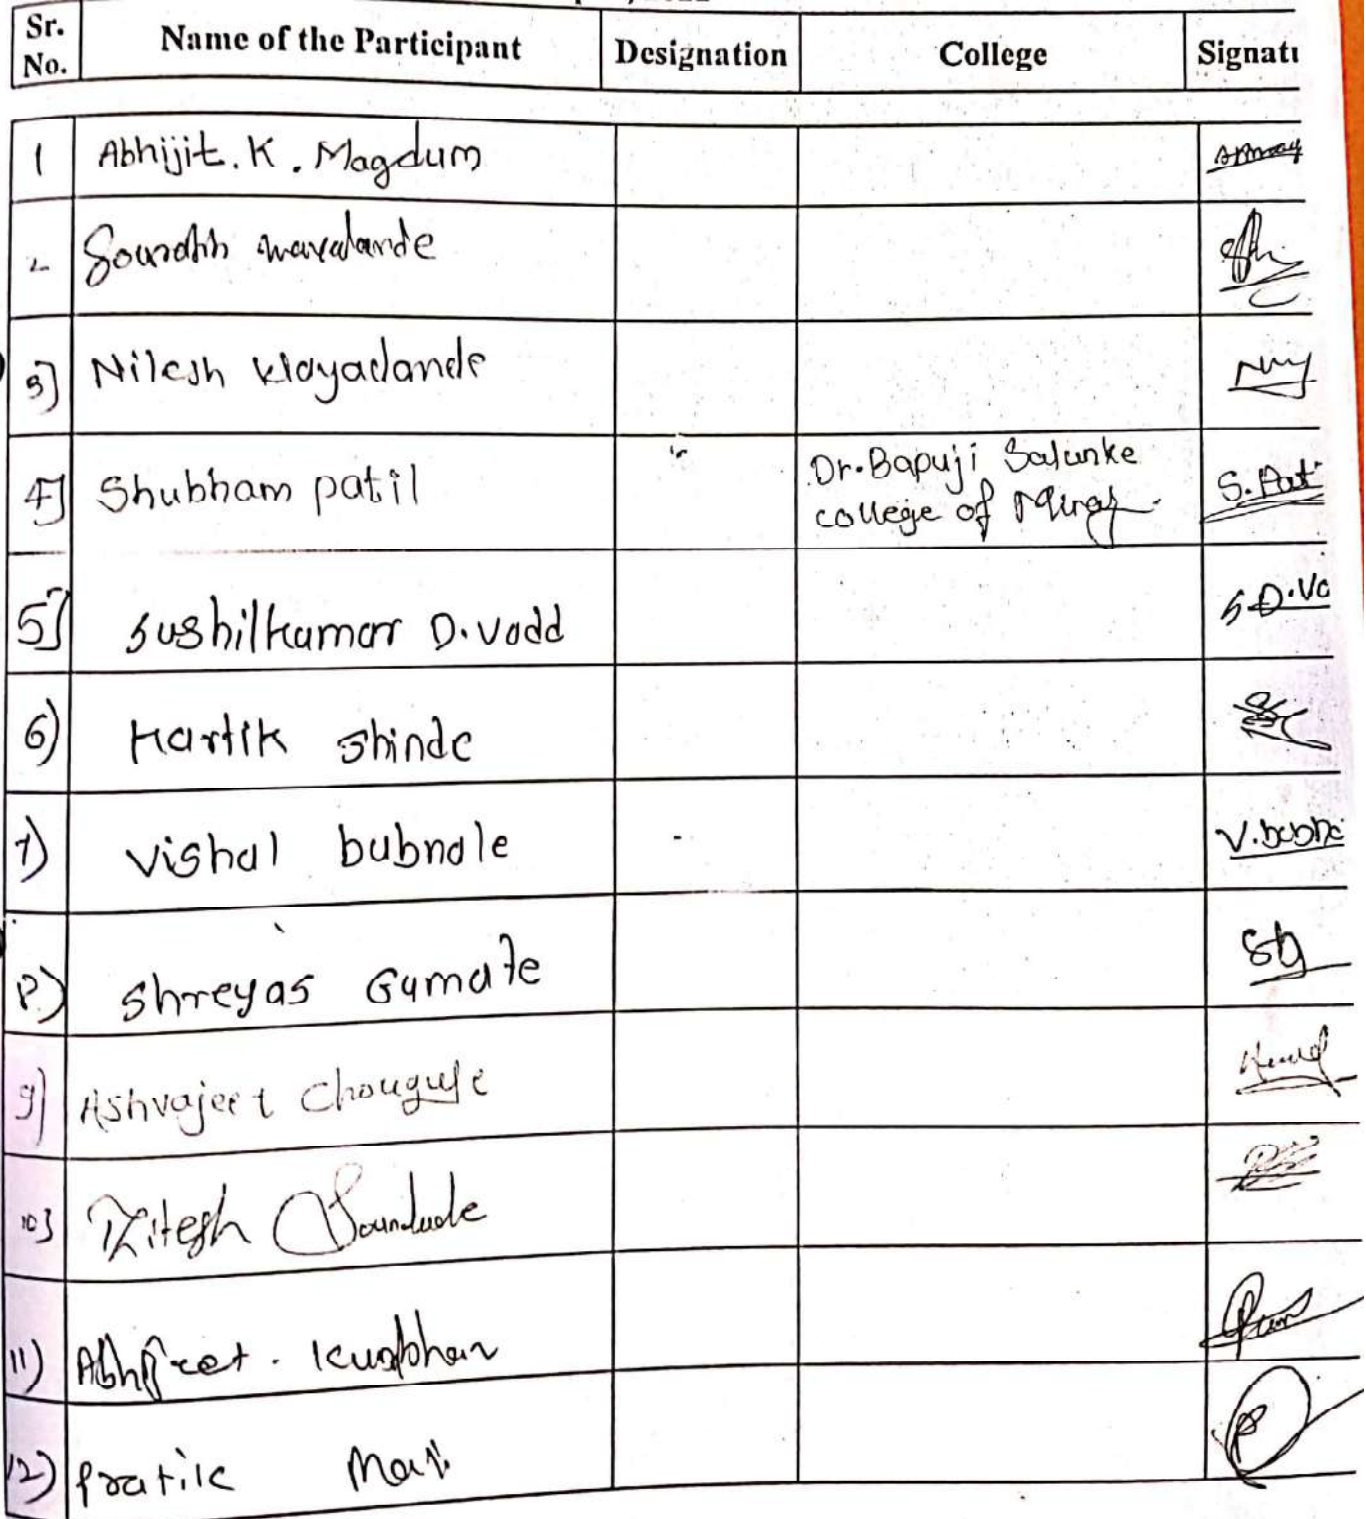 Sr. No. Name of the Participant Designation College Signatu
1 Abhijit. K. Magdum
2
3] Nilesh Wayadande
4] Shubham patil Dr. Bapuji Salunke S. Pat
college of Miraj
5] Sushilkumar D. Vadd S.D.Va
6) Kartik Shinde
7) Vishal bubnale V.bubna
8) Shreyas Gumate
9) Ashvajeet Chougule
10]
11) Abhijeet.
12) Pratik